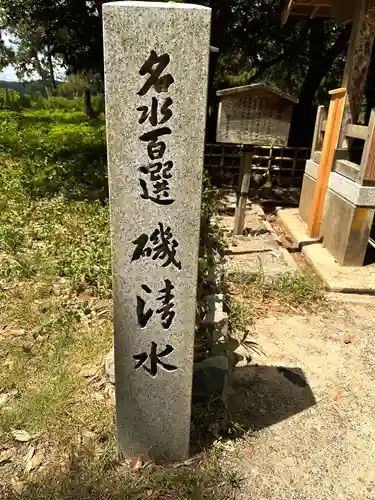 名水百選 磯清水